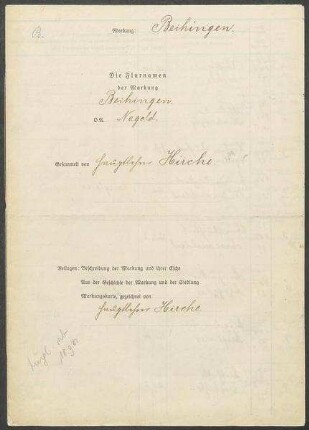 B.
Markung: Beihingen.
Die Flurnamen
der Markung
Beihingen
OA. Nagold.
Gesammelt von Hauptlehrer Hirche
Beilagen: Beschreibung der Markung und ihrer Esche
Aus der Geschichte der Markung und der Siedlung
Markungskarte, gezeichnet von
Hauptlehrer Hirche